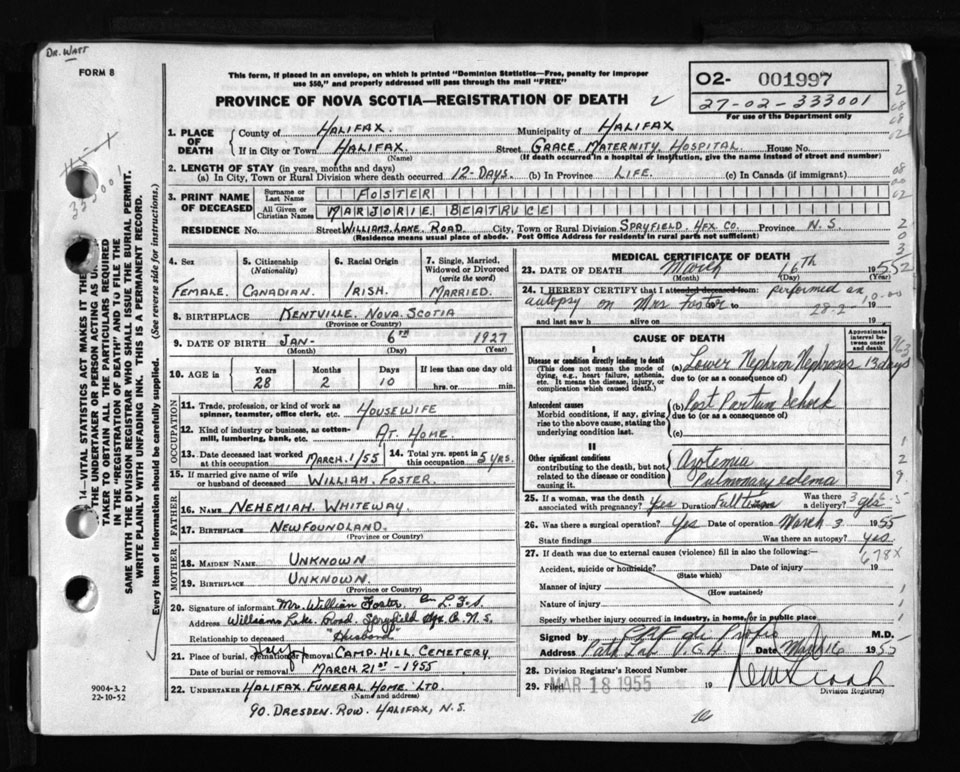 DR. WATT
FORM 8
This form, if placed in an envelope, on which is printed "Dominion Statistics—Free, penalty for improper
use $50," and properly addressed will pass through the mail "FREE"
PROVINCE OF NOVA SCOTIA—REGISTRATION OF DEATH
02- 001997
27-02-333001
For use of the Department only
1. PLACE OF DEATH
County of HALIFAX. Municipality of HALIFAX
If in City or Town HALIFAX. Street GRACE MATERNITY HOSPITAL. House No.
(Name) (If death occurred in a hospital or institution, give the name instead of street and number)
2. LENGTH OF STAY (in years, months and days)
(a) In City, Town or Rural Division where death occurred 12-DAYS. (b) In Province LIFE. (c) In Canada (if immigrant)
3. PRINT NAME OF DECEASED
Surname or Last Name FOSTER
All Given or Christian Names MARJORIE BEATRICE
RESIDENCE No. Street WILLIAMS LAKE ROAD City, Town or Rural Division SPRYFIELD HFX CO. Province N.S.
(Residence means usual place of abode. Post Office Address for residents in rural parts not sufficient)
4. Sex FEMALE.
5. Citizenship (Nationality) CANADIAN.
6. Racial Origin IRISH.
7. Single, Married, Widowed or Divorced (write the word) MARRIED.
8. BIRTHPLACE KENTVILLE. NOVA SCOTIA
(Province or Country)
9. DATE OF BIRTH JAN- 6TH 1927
(Month) (Day) (Year)
10. AGE in Years 28 Months 2 Days 10 If less than one day old hrs. or min.
OCCUPATION
11. Trade, profession, or kind of work as spinner, teamster, office clerk, etc. HOUSEWIFE
12. Kind of industry or business, as cotton-mill, lumbering, bank, etc. AT. HOME.
13. Date deceased last worked at this occupation MARCH. 1/55
14. Total yrs. spent in this occupation 5 YRS.
15. If married give name of wife or husband of deceased WILLIAM. FOSTER.
FATHER
16. Name NEHEMIAH. WHITEWAY.
17. Birthplace NEWFOUNDLAND.
(Province or Country)
MOTHER
18. MAIDEN NAME UNKNOWN
19. BIRTHPLACE UNKNOWN.
(Province or Country)
20. Signature of informant Mr. William Foster. L.F.S.
Address Williams Lake. Road. Spryfield Hfx Co. N.S.
Relationship to deceased "Husband"
21. Place of burial, cremation or removal CAMP. HILL. CEMETERY.
Date of burial or removal MARCH. 21st - 1955
22. UNDERTAKER HALIFAX. FUNERAL. HOME. LTD.
(Name and address)
90. DRESDEN. ROW. HALIFAX, N.S.
MEDICAL CERTIFICATE OF DEATH
23. DATE OF DEATH March 16th 1955
(Month) (Day) (Year)
24. I HEREBY CERTIFY that I attended deceased from: performed an
autopsy on Mrs Foster to
28-2 10-00
and last saw h alive on 19
CAUSE OF DEATH
Approximate interval between onset and death
I
Disease or condition directly leading to death
(This does not mean the mode of dying, e.g., heart failure, asthenia, etc. It means the disease, injury, or complication which caused death.)
(a) Lower Nephron Nephrosis 13 days
due to (or as a consequence of)
Antecedent causes
Morbid conditions, if any, giving rise to the above cause, stating the underlying condition last.
(b) Post Partum Shock
due to (or as a consequence of)
(c)
II
Other significant conditions
contributing to the death, but not related to the disease or condition causing it.
Azotemia
Pulmonary edema
25. If a woman, was the death associated with pregnancy? Yes Duration Full term Was there a delivery? yes
26. Was there a surgical operation? Yes Date of operation March 3 1955
State findings Was there an autopsy? yes
678X
27. If death was due to external causes (violence) fill in also the following:—
Accident, suicide or homicide? Date of injury 19
(State which)
Manner of injury
(How sustained)
Nature of injury
Specify whether injury occurred in industry, in home, or in public place
Signed by M.D.
Address Path Lab V.G.H. Date March 16 1955
28. Division Registrar's Record Number
29. Filed MAR 18 1955 19
Division Registrar)
14—VITAL STATISTICS ACT MAKES IT THE
THE UNDERTAKER OR PERSON ACTING AS U
TAKER TO OBTAIN ALL THE PARTICULARS REQUIRED
IN THE "REGISTRATION OF DEATH" AND TO FILE THE
SAME WITH THE DIVISION REGISTRAR WHO SHALL ISSUE THE BURIAL PERMIT.
WRITE PLAINLY WITH UNFADING INK. THIS IS A PERMANENT RECORD.
Every item of information should be carefully supplied. (See reverse side for instructions.)
333001
9004-3.2
22-10-52